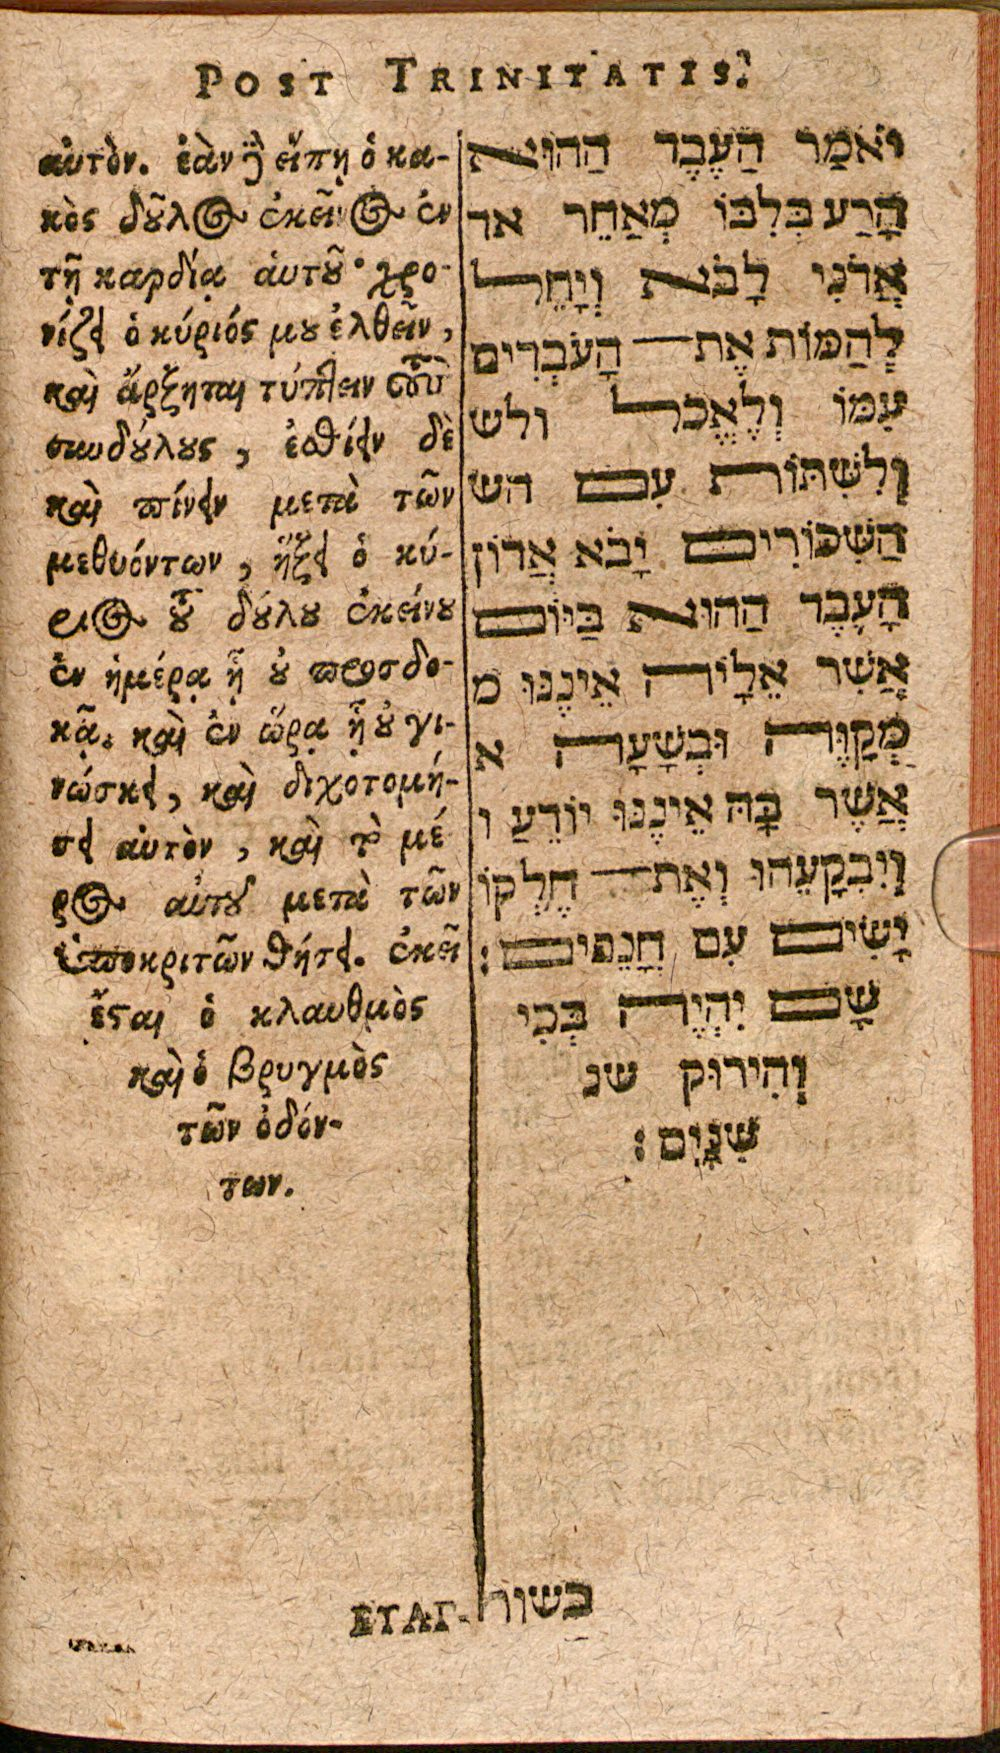 POST TRINITATIS.
αὐτὸν. ἐὰν δὲ εἴπῃ ὁ κα-
κὸς δοῦλος ἐκεῖνος ἐν
τῇ καρδίᾳ ἁυτοῦ· χρο-
νίζει ὁ κύριός μου ἐλθεῖν,
καὶ ἄρξηται τύπτειν τοὺς
συνδούλους, ἐσθίειν δὲ
καὶ πίνειν μετὰ τῶν
μεθυόντων, ἥξει ὁ κύ-
ριος τοῦ δούλου ἐκείνου
ἐν ἡμέρᾳ ᾗ οὐ προσδο-
κᾷ. καὶ ἐν ὥρᾳ ᾗ οὐ γι-
νώσκει, καὶ διχοτομή-
σει αὐτὸν, καὶ τὸ μέ
ρος αὐτοῦ μετὰ τῶν
ὑποκριτῶν θήσει. ἐκεῖ
ἔσται ὁ κλαυθμὸς
καὶ ὁ βρυγμὸς
τῶν ὀδόν-
των.
ΕΥΑΓ-
וֹאמַר הַעֶבֶד הַהוּא
הָרַע בִּלִבּוֹ מְאַחֵר אד
אֲדֹנִי לָבֹא וְיָחֵל
לְהַמּוֹת אֶת־ הָעֹבְדִים
עִמּוֹ וְלֶאֱכֹל ולש
וְלִשְׁתּוֹת עִם הש
הַשִּׁכּוֹרִים יָבֹא אֲדוֹן
הָעֶבֶד הַהוּא בַּיּוֹם
אֲשֶׁר אֵלָיה אֵינֶנּוּ מ
מְקַוֶּה וּבְשָׁעָה א
אֲשֶׁר בָּהּ אֵינֶנּוּ יוֹדֵעַ ו
וְיִבְקָעֵהוּ וְאֶת־ חֶלְקוֹ
יָשִׂים עִם חֲנֵפִים:
שָׁם יִהְיֶה בְּכִי
וְהִירוּק שנ
שִׁנָּיִם:
בשור